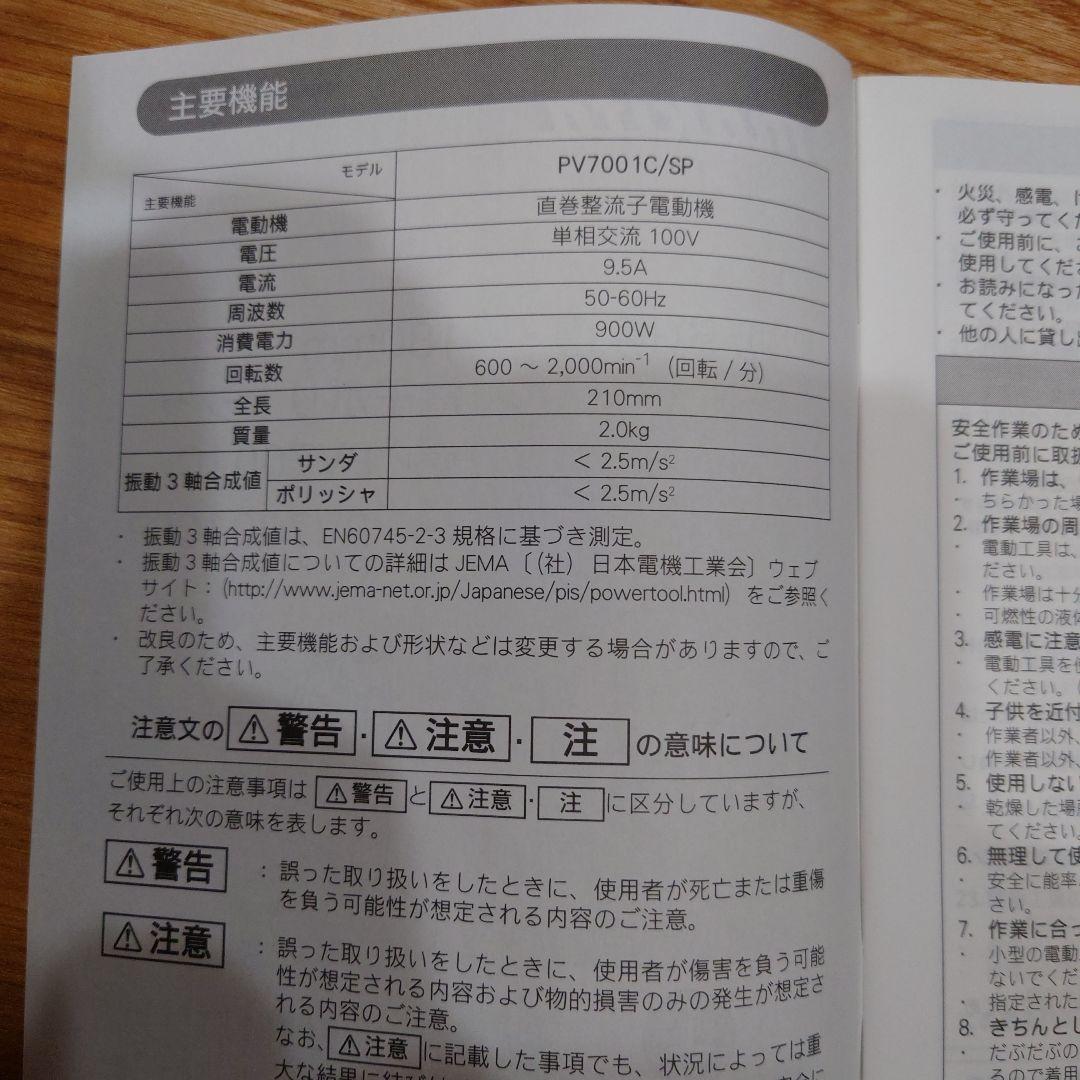 主要機能
モデル PV7001C/SP
主要機能
電動機 直巻整流子電動機
電圧 単相交流 100V
電流 9.5A
周波数 50-60Hz
消費電力 900W
回転数 600 ～ 2,000min⁻¹ (回転 / 分)
全長 210mm
質量 2.0kg
振動 3 軸合成値 サンダ < 2.5m/s²
ポリッシャ < 2.5m/s²
・ 振動 3 軸合成値は、EN60745-2-3 規格に基づき測定。
・ 振動 3 軸合成値についての詳細は JEMA〔(社) 日本電機工業会〕ウェブ
サイト：(http://www.jema-net.or.jp/Japanese/pis/powertool.html) をご参照く
ださい。
・ 改良のため、主要機能および形状などは変更する場合がありますので、ご
了承ください。
注意文の ⚠警告 ・ ⚠注意 ・ 注 の意味について
ご使用上の注意事項は ⚠警告 と ⚠注意 ・ 注 に区分していますが、
それぞれ次の意味を表します。
⚠警告 ：誤った取り扱いをしたときに、使用者が死亡または重傷
を負う可能性が想定される内容のご注意。
⚠注意 ：誤った取り扱いをしたときに、使用者が傷害を負う可能
性が想定される内容および物的損害のみの発生が想定さ
れる内容のご注意。
なお、⚠注意 に記載した事項でも、状況によっては重
大な結果に結び
・ 火災、感電、
必ず守ってくだ
・ ご使用前に、
使用してくださ
・ お読みになった
てください。
・ 他の人に貸し出
安全作業のため
ご使用前に取扱
1. 作業場は、
・ ちらかった場
2. 作業場の周
・ 電動工具は、
ださい。
・ 作業場は十分
・ 可燃性の液体
3. 感電に注意
・ 電動工具を使
ください。(
4. 子供を近付
・ 作業者以外、
・ 作業者以外、
5. 使用しない
・ 乾燥した場所
てください。
6. 無理して使
・ 安全に能率
さい。
7. 作業に合っ
・ 小型の電動
ないでくだ
・ 指定された
8. きちんとし
・ だぶだぶの
るので着用